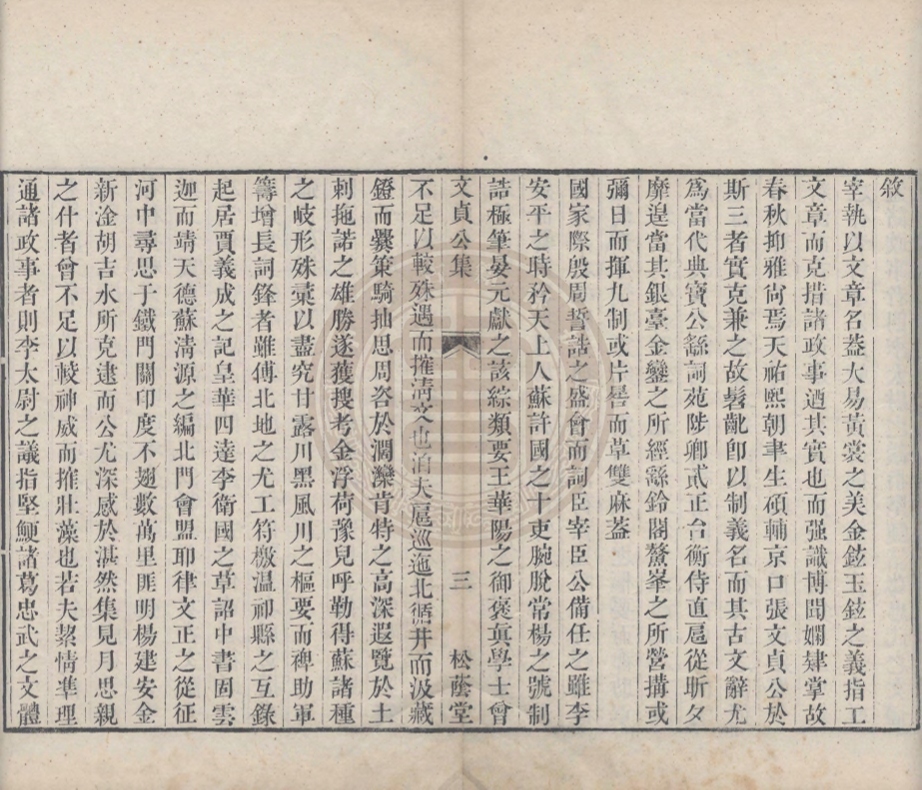 敘
宰執以文章名葢大易黃裳之美金鉉玉鉉之義指工
文章而克措諸政事遒其實也而强識博聞嫻肄掌故
春秋抑雅尙焉天祐熙朝聿生碩輔京口張文貞公於
斯三者實克兼之故髫齔卽以制義名而其古文辭尤
爲當代典寶公繇詞苑陟卿貳正台衡侍直扈從昕夕
靡遑當其銀臺金鑾之所經繇鈴閣鰲峯之所營搆或
彌日而揮九制或片晷而草雙麻葢
國家際殷周誓誥之盛會而詞臣宰臣公備任之雖李
安平之時矜天上人蘇許國之十吏腕脫常楊之號制
誥極筆晏元獻之該綜類要王華陽之御褒眞學士曾
文貞公集 三 松蔭堂
不足以較殊遇而摧淸文也洎大扈巡迤北循井而汲藏
鐙而爨策騎抽思周咨於㶟灤肯特之高深遐覽於土
剌拖諾之雄勝遂獲搜考金浮荷豫兒呼勒得蘇諸種
之岐形殊彙以盡究甘露川黑風川之樞要而裨助軍
籌增長詞鋒者雖傅北地之尤工符檄温祁縣之互錄
起居賈義成之記皇華四達李衛國之草詔中書固雲
迦而靖天德蘇淸源之編北門會盟耶律文正之從征
河中尋思于鐵門關印度不翅數萬里匪明楊建安金
新淦胡吉水所克逮而公尤深感於湛然集見月思親
之什者曾不足以較神威而摧壯藻也若夫絜情準理
通諸政事者則李太尉之議指堅鯁諸葛忠武之文體